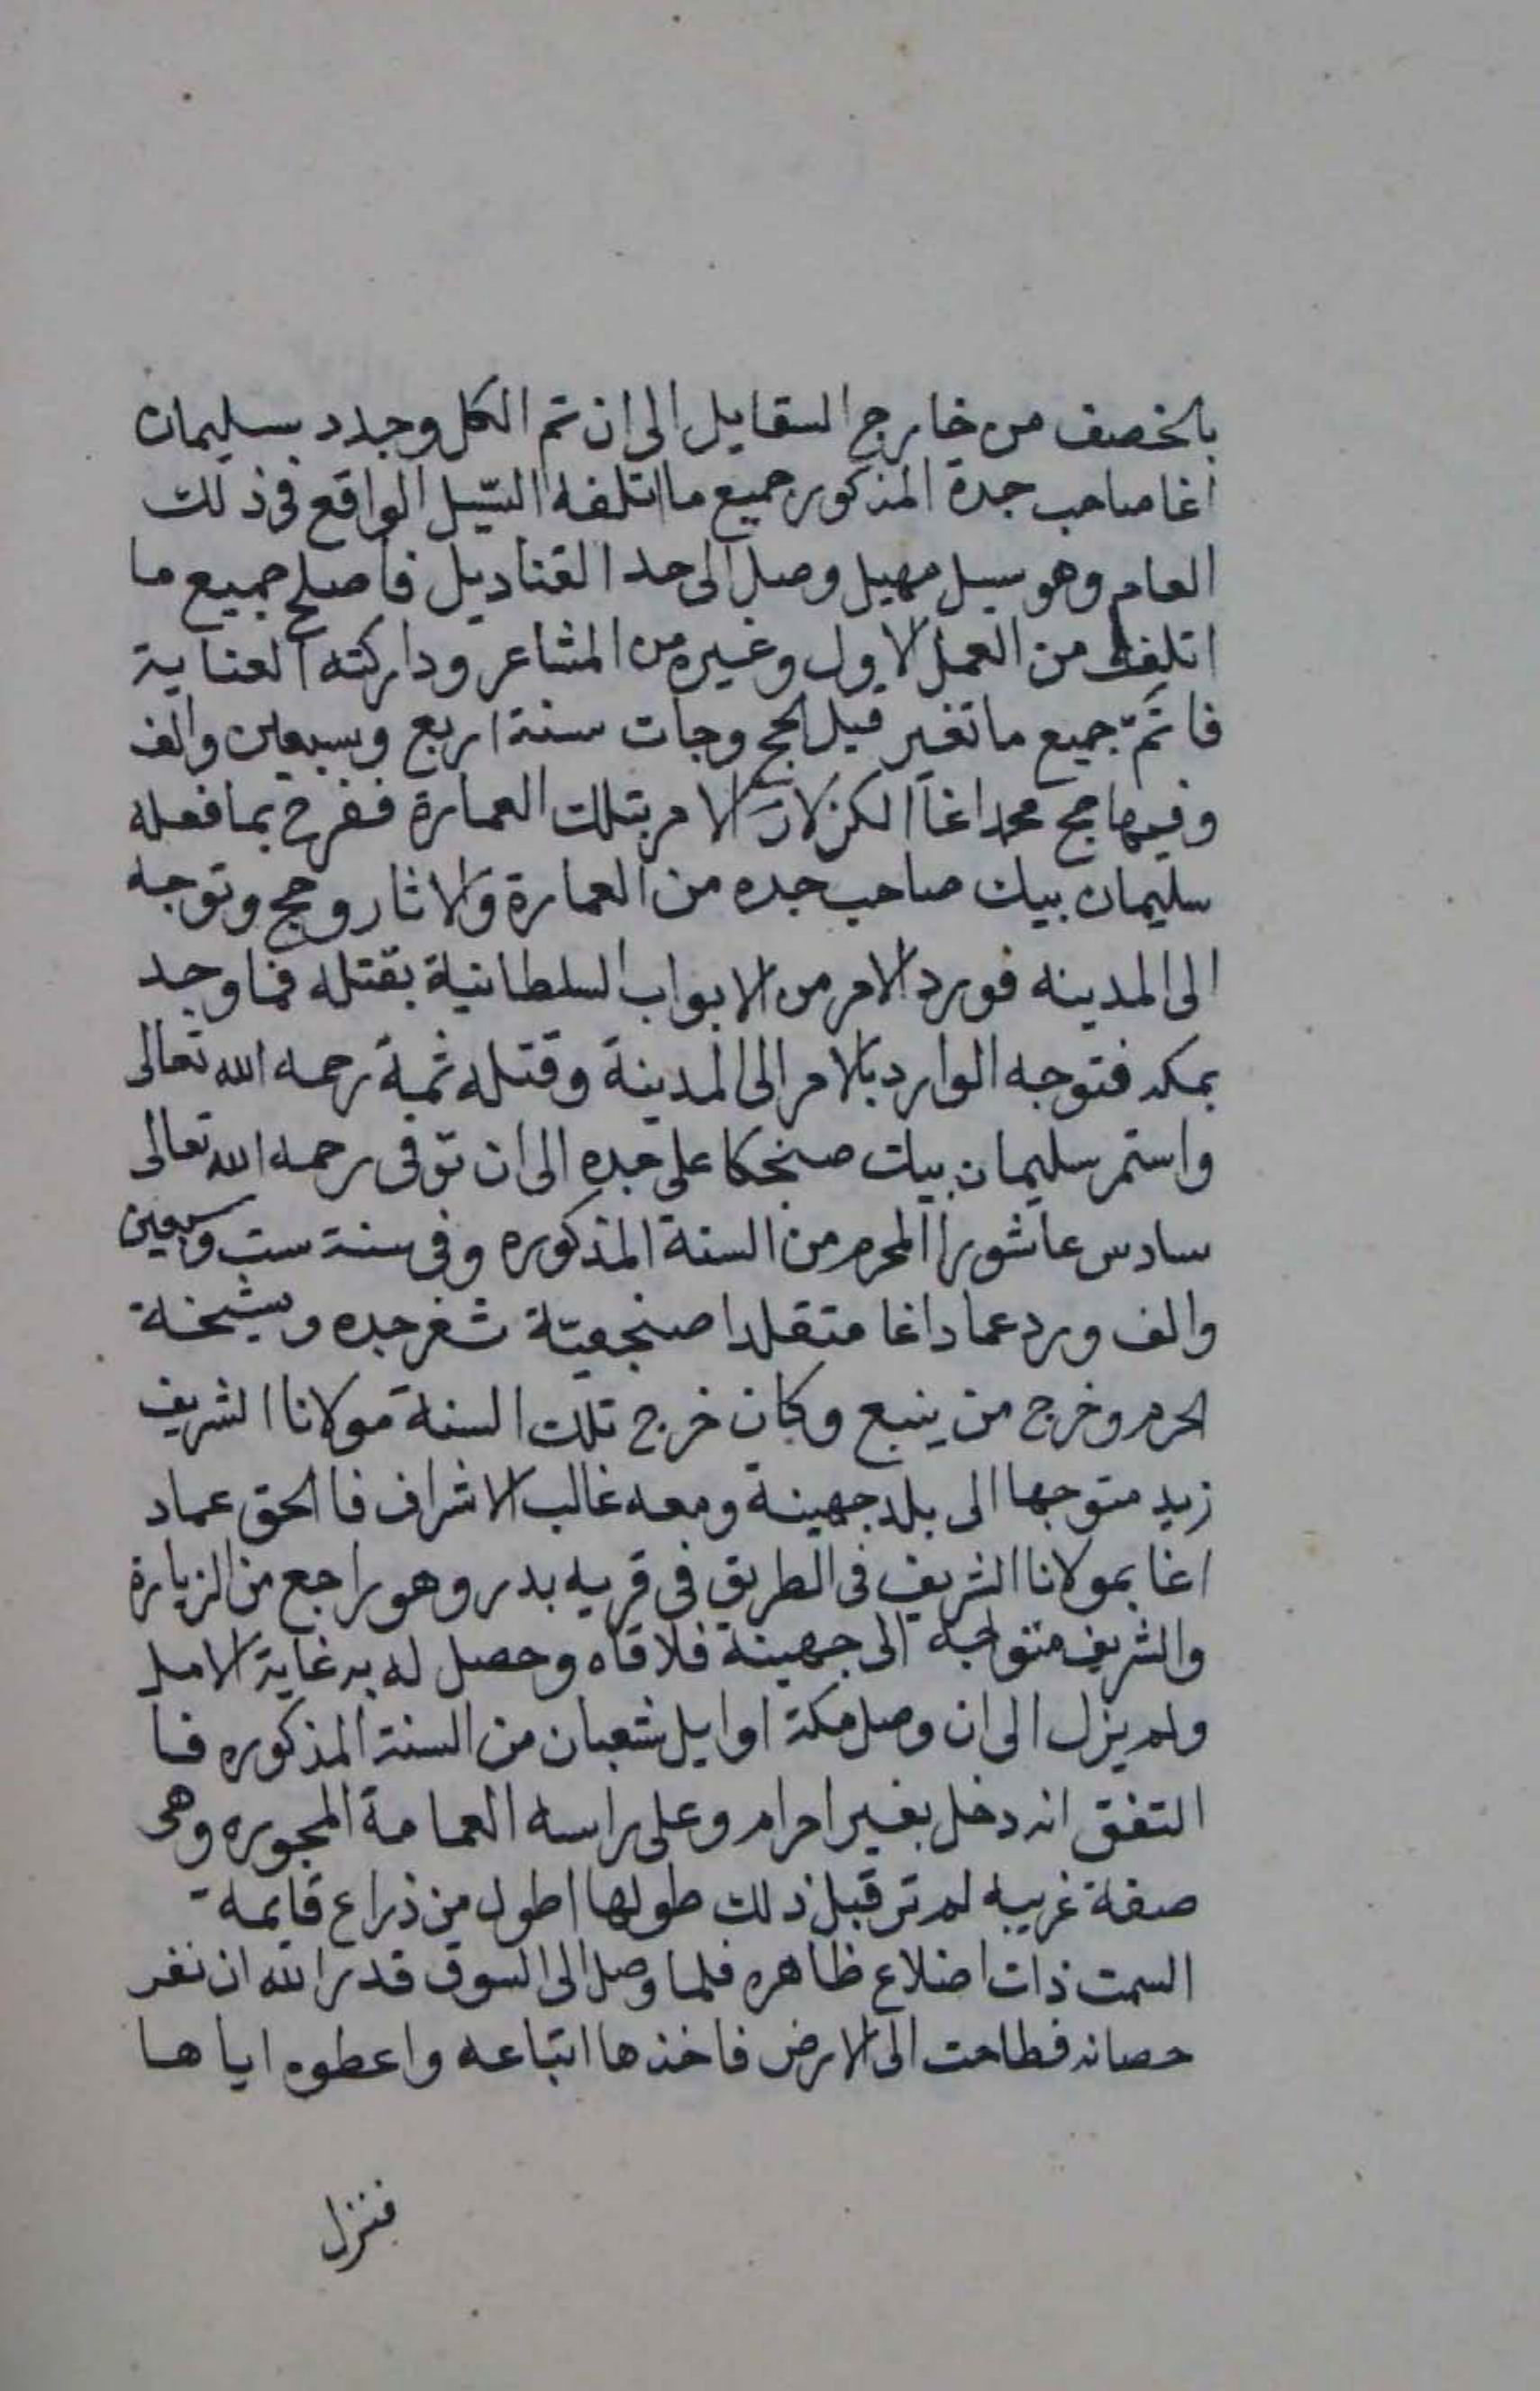 بالخصف من خارج السقايل الى ان تم الكل وجدد سليمان
اغا صاحب جدة المذكور جميع ما اتلفه السّيل الواقع فى ذلك
العام وهو سيل مهيل وصل الى حد القناديل فاصلح جميع ما
اتلفه من العمل الاول وغيره من المشاعر وداركته العناية
فاتمّ جميع ما تغير قبل الحج وجات سنة اربع وسبعين والف
وفيها حج محمد اغا الكزلار الامر بتلك العمارة ففرح بما فعله
سليمان بيك صاحب جده من العمارة والاثار وحج وتوجه
الى المدينه فورد الامر من الابواب السلطانية بقتله فما وجد
بمكه فتوجه الوارد بالامر الى المدينة وقتله ثمة رحمه الله تعالى
واستمر سليمان بيك صنجكا على جده الى ان توفى رحمه الله تعالى
سادس عاشورا المحرم من السنة المذكوره وفى سنة ست وسبعين
والف ورد عماد اغا متقلدا صنجقيّة ثغر جده ومشيخة
الحرم وخرج من ينبع وكان خرج تلك السنة مولانا الشريف
زيد متوجها الى بلد جهينة ومعه غالب الاشراف فالحق عماد
اغا بمولانا الشريف فى الطريق فى قريه بدر وهو راجع من الزيارة
والشريف متواجه الى جهينة فلاقاه وحصل له به غاية الامل
ولم يزل الى ان وصل مكة اوايل شعبان من السنة المذكوره فا
التفق انه دخل بغير احرام وعلى راسه العمامة المجوره وهى
صفة غريبه لم تر قبل ذلك طولها اطول من ذراع قايمة
السمت ذات اضلاع ظاهره فلما وصل الى السوق قدر الله ان نفر
حصانه فطاحت الى الارض فاخذها اتباعه واعطوه اياها
فنزل